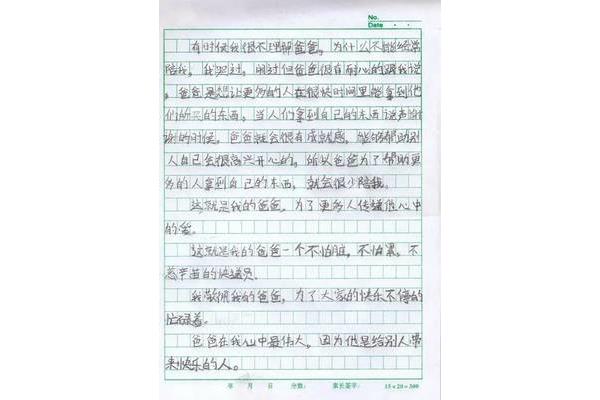 No.
Date . .
有时候我很不理解爸爸，为什么不能经常
陪我，我哭过，闹过但爸爸很有耐心的跟我说
，爸爸是想让更多的人在很快时间里能拿到他
们所买的东西，当人们拿到自己的东西说声谢
谢的时候，爸爸就会很有成就感，能够帮助别
人自己会很高兴开心的，所以爸爸为了帮助更
多的人拿到自己的东西，就会很少陪我。
这就是我的爸爸，为了更多人传递他心中
的爱。
这就是我的爸爸一个不怕脏，不怕累，不
惹辛苦的快递员。
我敬佩我的爸爸，为了大家的快乐不停的
忙碌着。
爸爸在我心中最伟大，因为他是给别人带
来快乐的人。
年 月 日 分数： 家长签字： 15×20=300